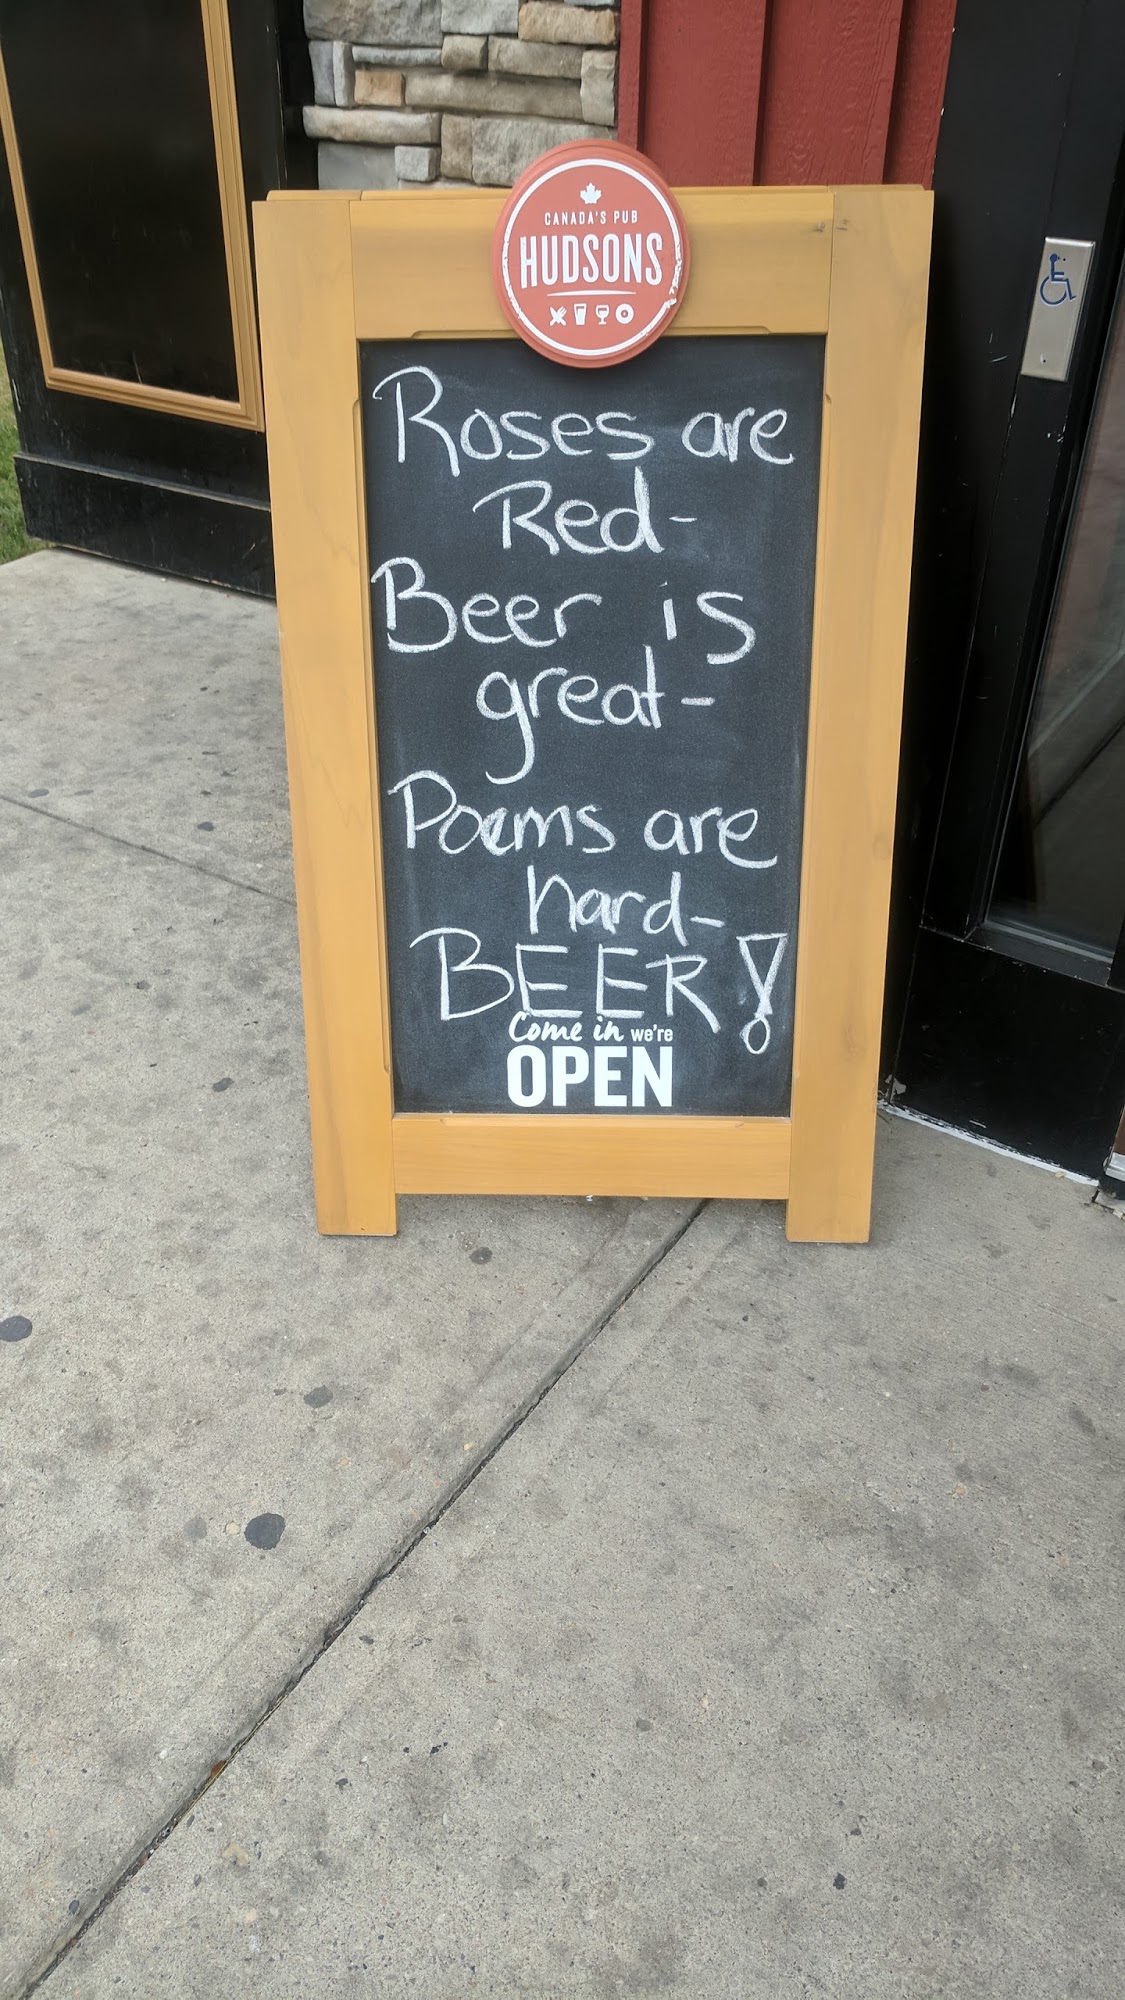 CANADA'S PUB
HUDSONS
Roses are
Red-
Beer is
great-
Poems are
hard-
BEER!
Come in we're
OPEN